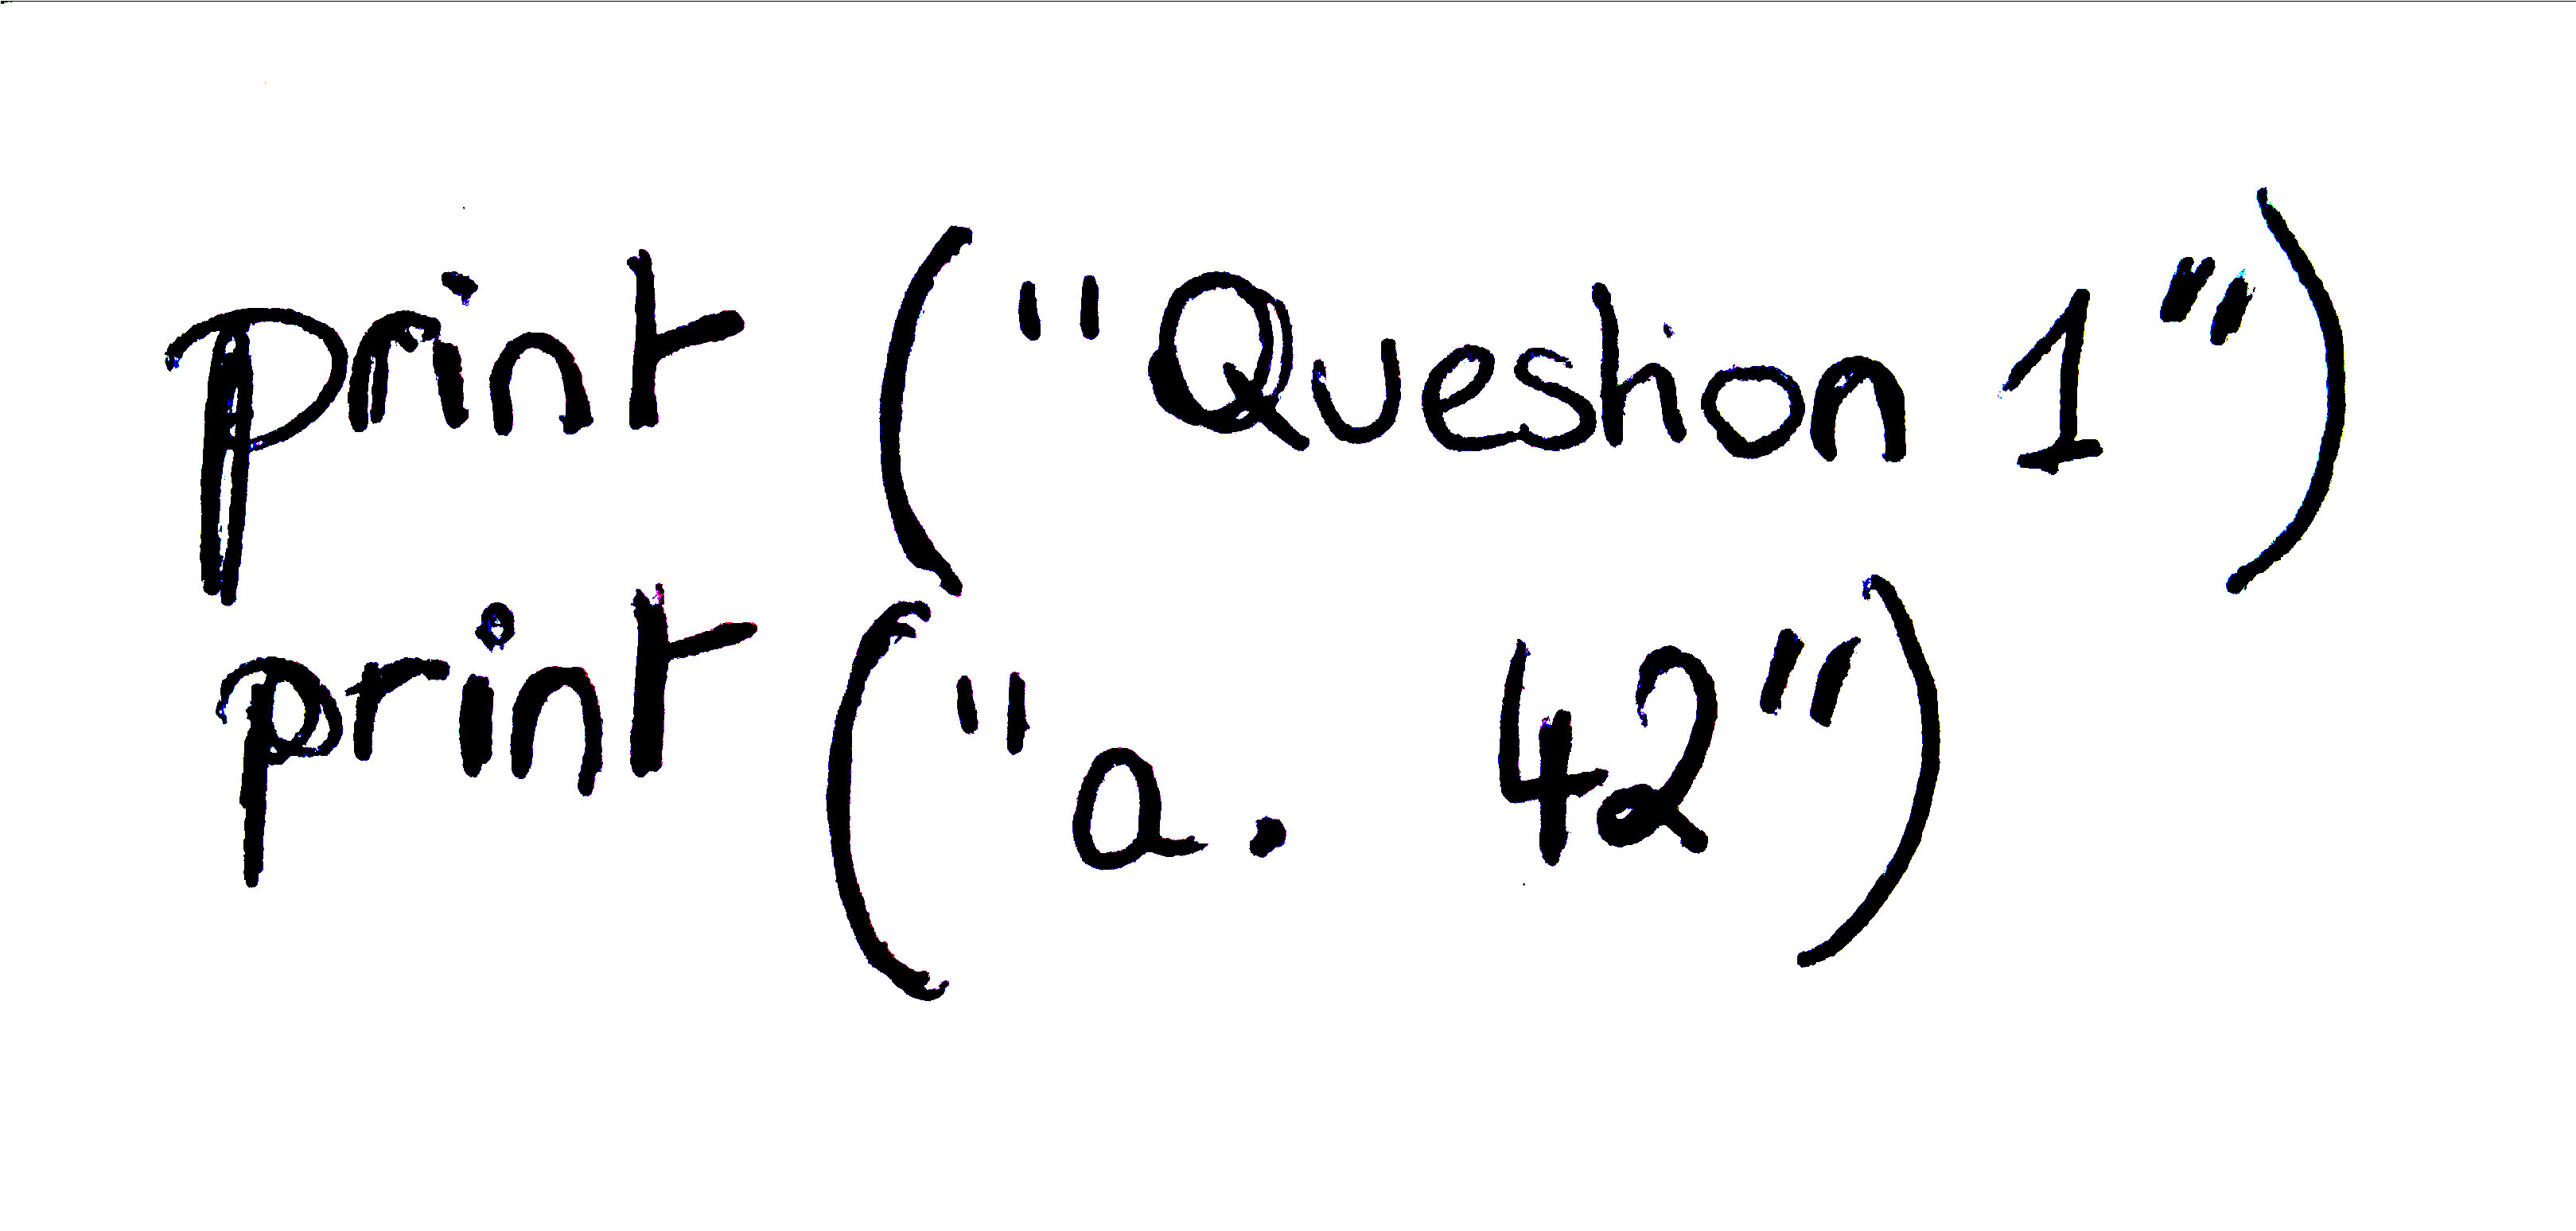 print ("Question 1")
print ("a.  42")